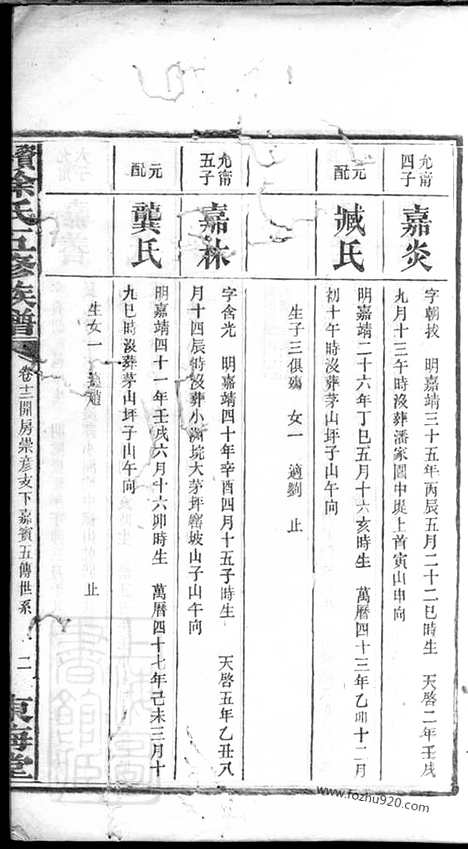 允甯四子
嘉炎
字朝拔 明嘉靖三十五年丙辰五月二十二巳時生 天啓二年壬戌
九月十三午時沒葬潘家園中堤上首寅山申向
元配
臧氏
明嘉靖二十六年丁巳五月十六亥時生 萬曆四十三年乙卯十二月
初十午時沒葬茅山坪子山午向
生子三俱殤 女一 適劉 止
允甯五子
嘉林
字含光 明嘉靖四十年辛酉四月十五子時生 天啓五年乙丑八
月十四辰時沒葬小灣垸大茅坪窰坡山子山午向
元配
龔氏
明嘉靖四十一年壬戌六月十六卯時生 萬曆四十七年己未三月十
九巳時沒葬茅山坪子山午向
生女一 適趙 止
徐氏五修族譜
卷十二開房崇彦支下嘉賓五傳世系
二
東海堂
www.fozhu920.com